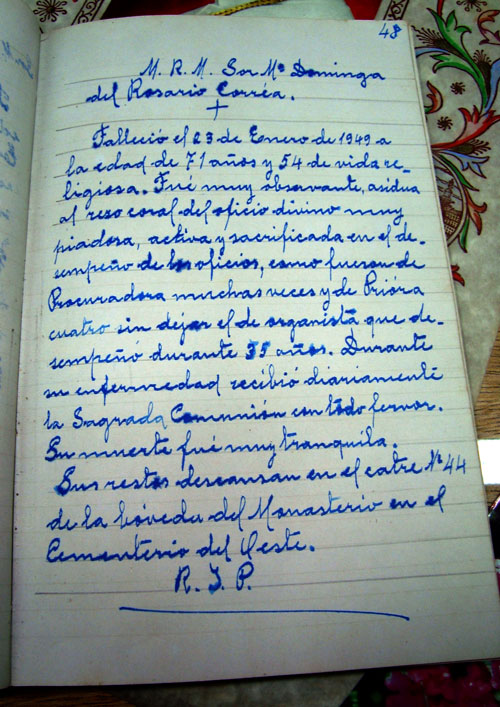 48
M. R. M. Sor Mª Dominga
del Rosario Corréa.
Falleció el 23 de Enero de 1949 a
la edad de 71 años y 54 de vida re-
ligiosa. Fué muy observante, asidua
al rezo coral del oficio divino muy
piadosa, activa y sacrificada en el de-
sempeño de los oficios, como fueron de
Procuradora muchas veces y de Prióra
cuatro sin dejar el de organista que de-
sempeñó durante 35 años. Durante
su enfermedad recibió diariamente
la Sagrada Comunión con todo fervor.
Su muerte fué muy tranquila.
Sus restos descansan en el catre Nº 44
de la bóveda del Monasterio en el
Cementerio del Oeste.
R. I. P.